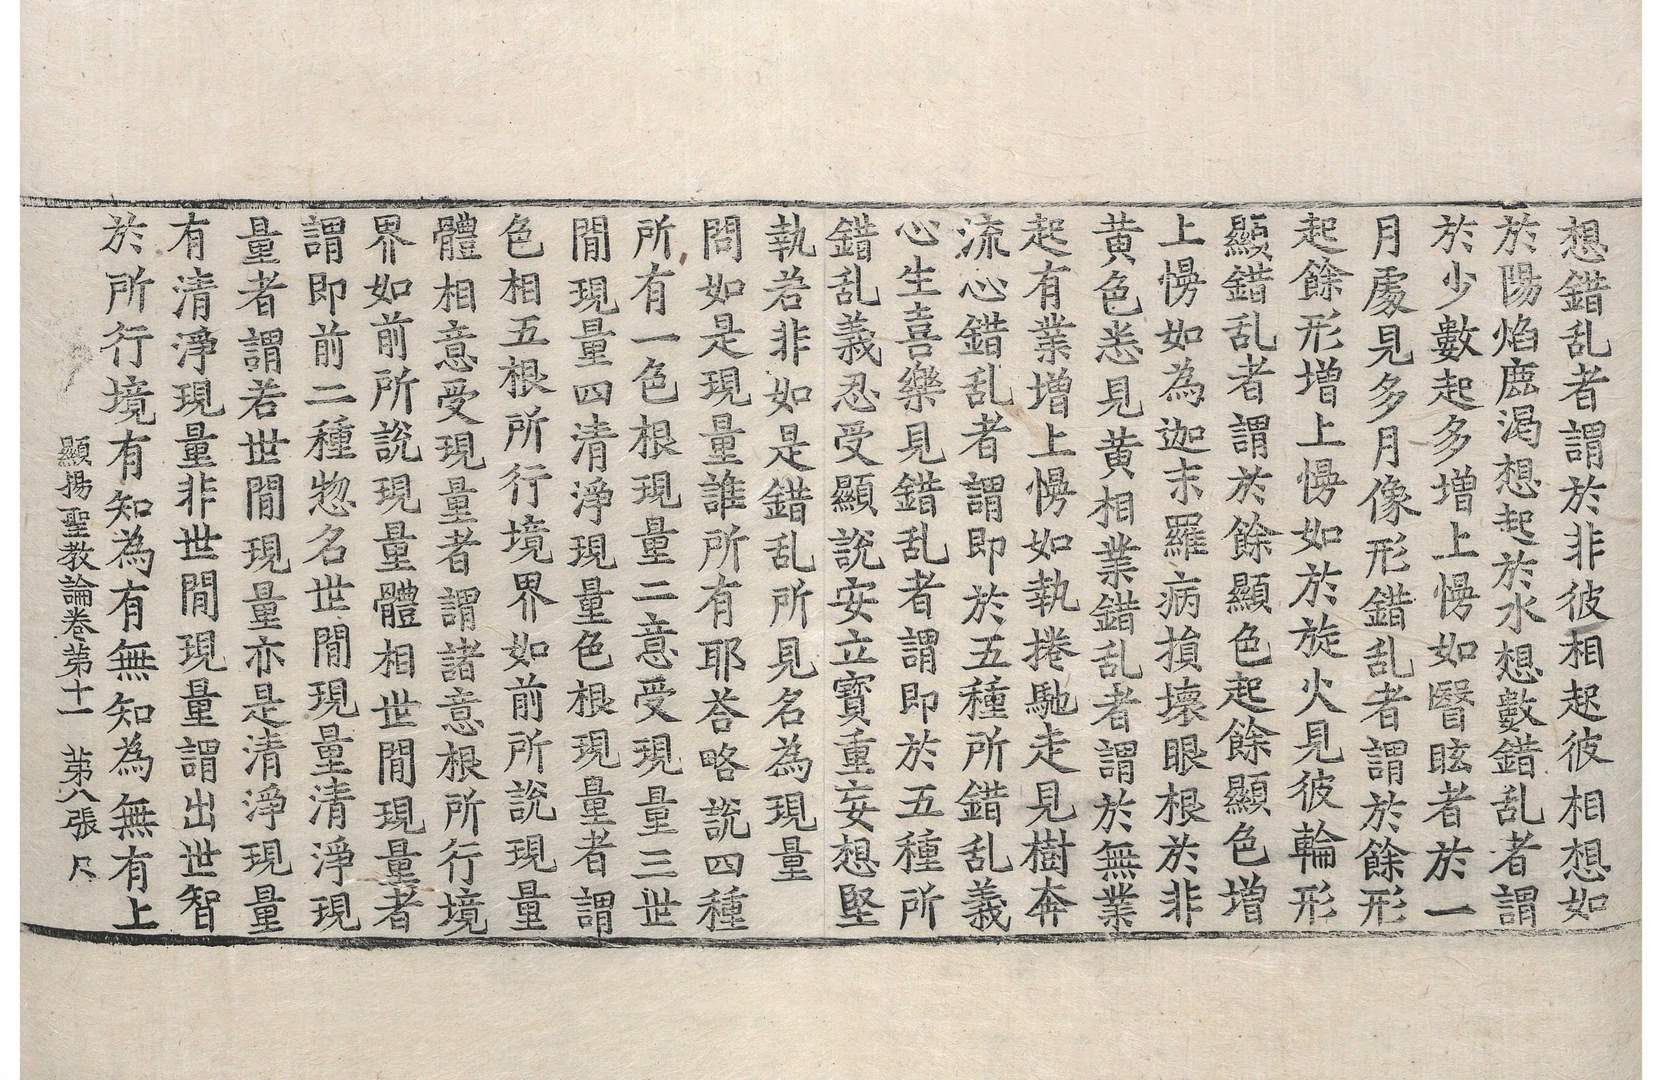 想錯乱者謂於非彼相起彼相想如
於陽焰鹿渴想起於水想數錯乱者謂
於少數起多增上慢如瞖眩者於一
月處見多月像形錯乱者謂於餘形
起餘形增上慢如於旋火見彼輪形
顯錯乱者謂於餘顯色起餘顯色增
上慢如為迦末羅病損壞眼根於非
黃色悉見黃相業錯乱者謂於無業
起有業增上慢如執捲馳走見樹奔
流心錯乱者謂即於五種所錯乱義
心生喜樂見錯乱者謂即於五種所
錯乱義忍受顯說安立寶重妄想堅
執若非如是錯乱所見名為現量
問如是現量誰所有耶荅略說四種
所有一色根現量二意受現量三世
閒現量四清淨現量色根現量者謂
色相五根所行境界如前所說現量
體相意受現量者謂諸意根所行境
界如前所說現量體相世閒現量者
謂即前二種惣名世閒現量清淨現
量者謂若世閒現量亦是清淨現量
有清淨現量非世閒現量謂出世智
於所行境有知為有無知為無有上
顯揚聖教論卷第十一 苐八張 尺